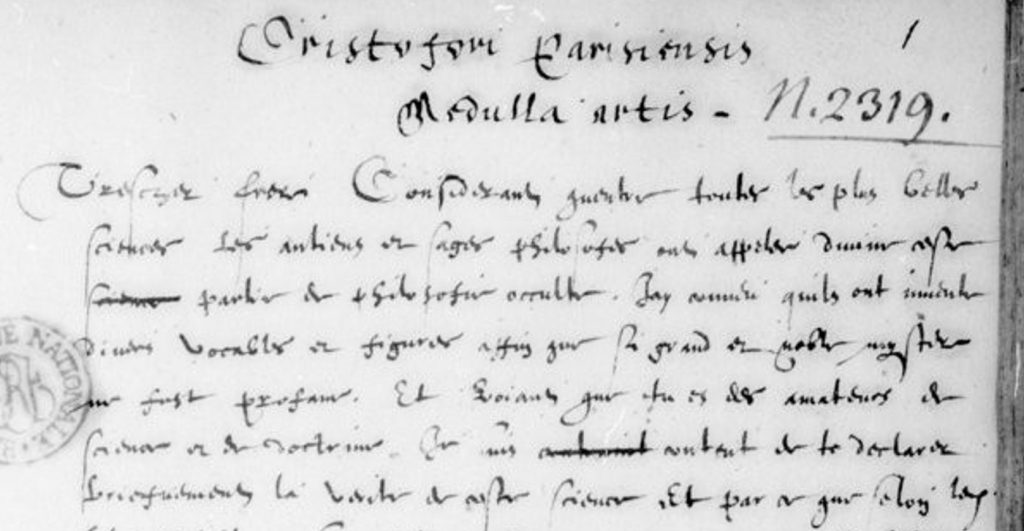 Cristofori Parisiensis 1
Medulla artis - N. 2319.
Trescher frere Considerant quentre toutes les plus belles
sciences les antiens et sages philosofes ont appelé divine ceste
science partie de philosofie occulte. Jay conneu quilz ont invente
divers vocables et figures affin que si grand et noble mystere
ne fust profane. Et voiant que tu es des amateurs de
science et de doctrine. Je suis content de te declarer
briefvement la verite de ceste science Et par ce que selon
E NATIONALE